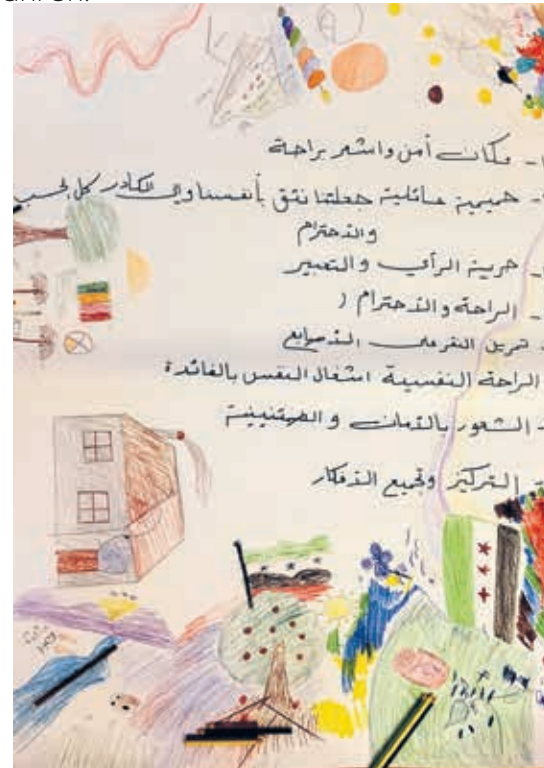 - مكان أمن واشعر براحة
- حميمية عائلية جعلتنا نثق بأنفسنا وفي الكادر كل الحب
والاحترام
- حرية الرأي والتعبير
- الراحة والاحترام (
- تمرين النقر على الأصابع
الراحة النفسية اشغال النفس بالفائدة
- الشعور بالأمان والطمئنينة
- التركيز وتجميع الأفكار